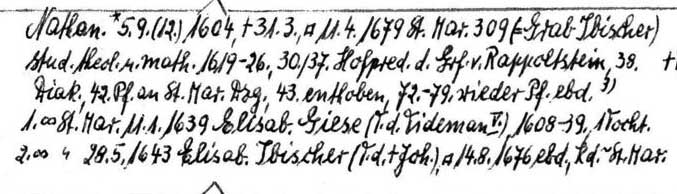 Nathan. *5.9.(12.) 1604, +31.3., ¤ 11.4.1679 St. Mar. 309 (= Grab Ibischer)
stud. theol. u. math. 1619-26, 30./37. Hofpred. d. Grf. v. Rappoltstein, 38.
Diak., 42. Pf. an St. Mar. Dzg., 43. enthoben, 72.-79. wieder Pf. ebd. 3)
1. ∞ St. Mar. 11.1.1639 Elisab. Giese (T. d. Tideman V.) 1608-39, 1 Tocht.
2. ∞ " 28.5.1643 Elisab. Ibischer (T. d. + Joh.), ¤ 14.8.1676 ebd., Kd. ~ St. Mar.